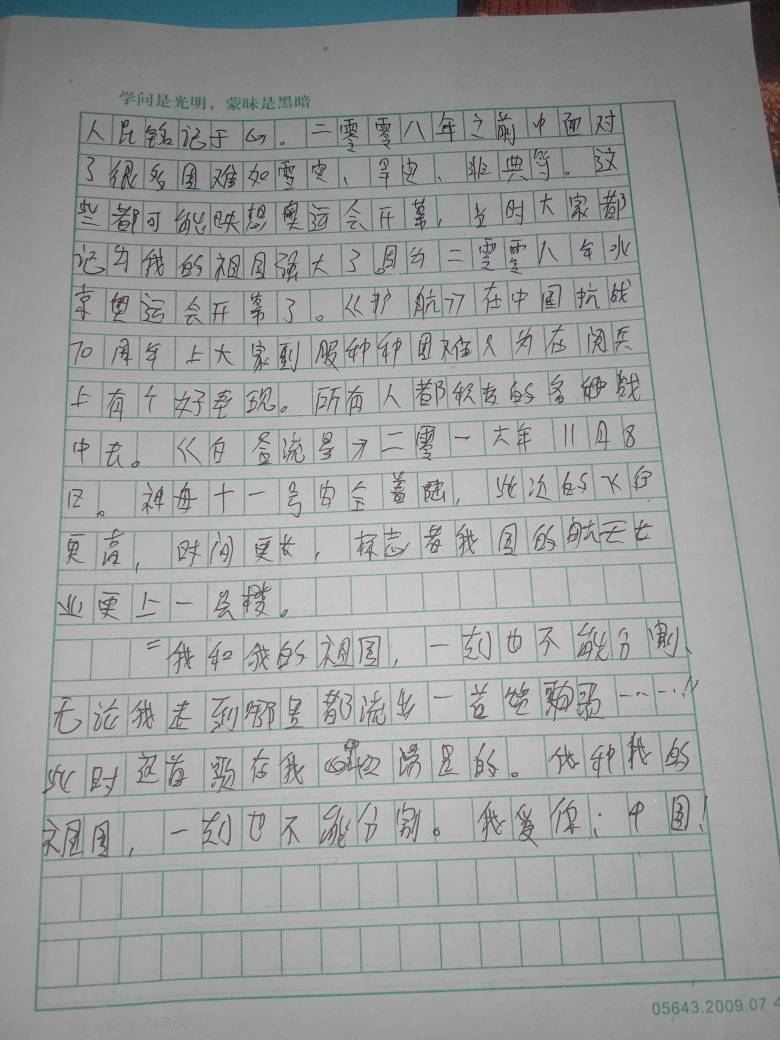 学问是光明，蒙昧是黑暗
人民铭记于心。二零零八年之前中面对
了很多困难如雪灾、旱灾、非典等。这
些都可能映想奥运会开幕，当时大家都
记为我的祖国强大了因为二零零八年北
京奥运会开幕了。《护航》在中国抗战
70周年上大家到服种种困难只为在阅兵
上有个好表现。所有人都积极的备战
中去。《白昼流星》二零一六年11月18
日。神舟十一号安全着陆，此次的飞行
更高，时间更长，标志着我国的航天
业更上一层楼。
"我和我的祖国，一刻也不能分割、
无论我走到哪里都流出一首赞歌……"
此时这首歌在我的。我和我的
祖国，一刻也不能分割。我爱你：中国！
05643.2009.07